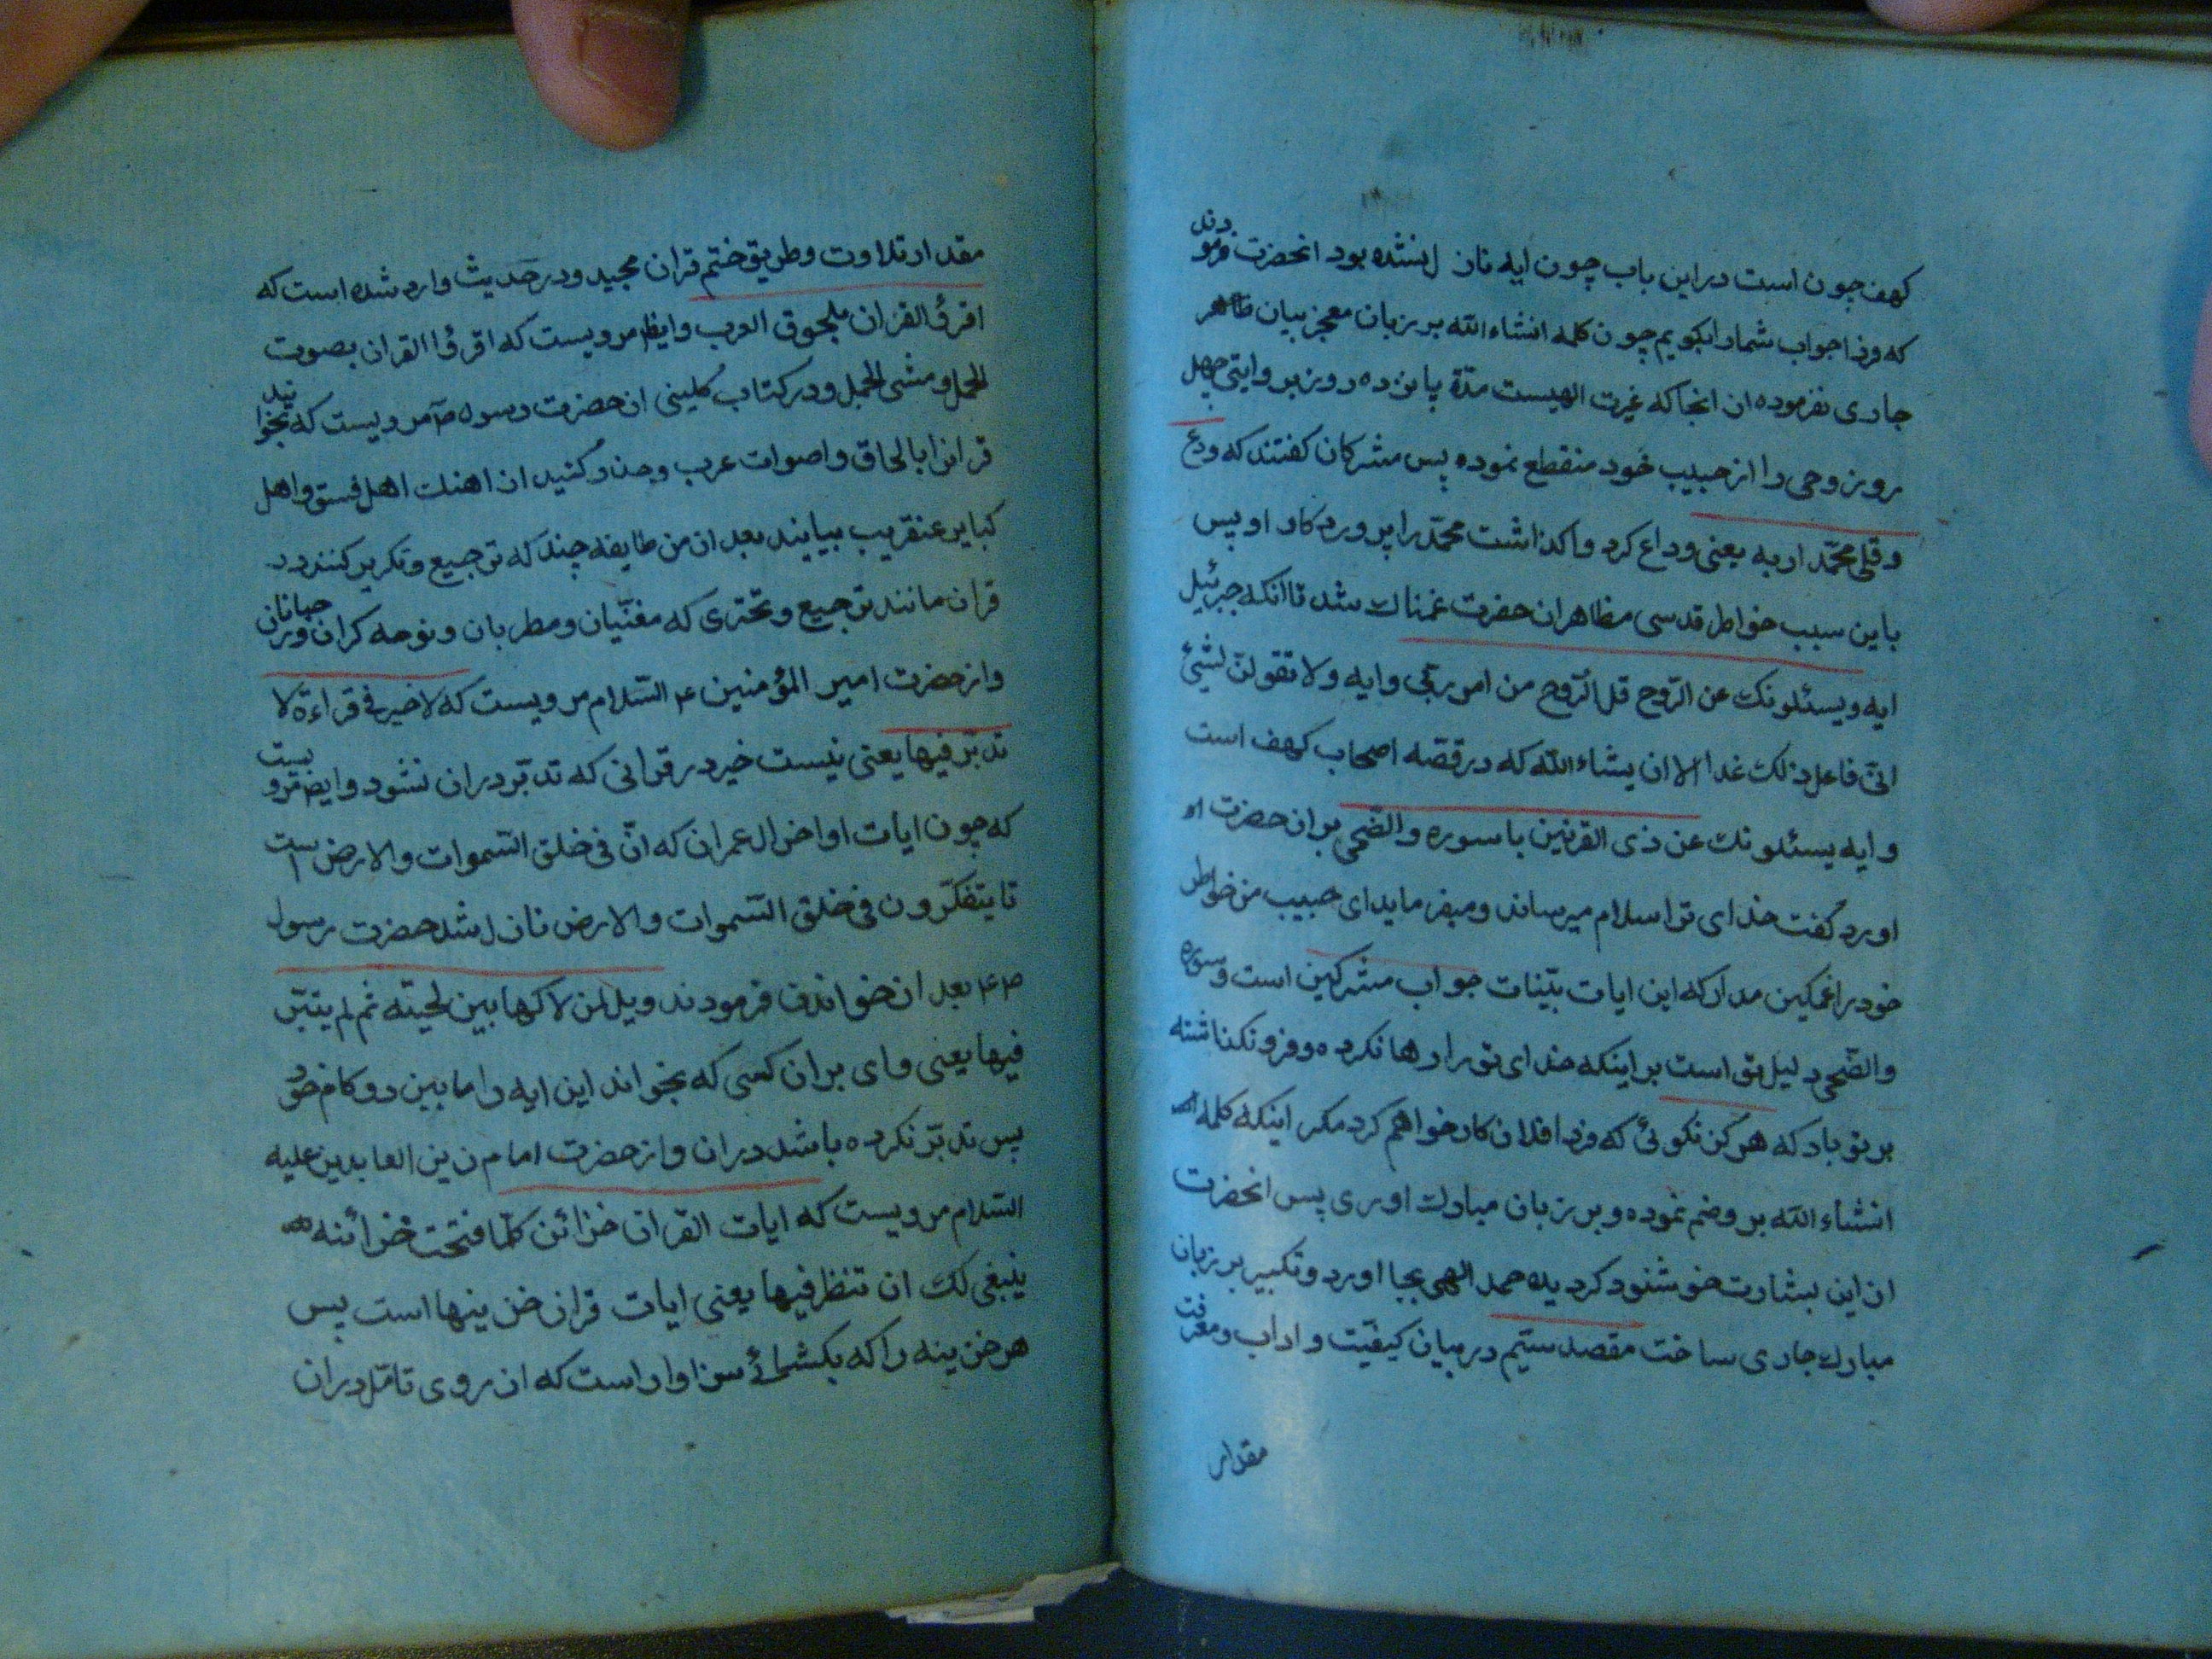 کهف چون است در این باب چون ایه نازل نشده بود انحضرت فرمودند
که فردا جواب شما را بکویم چون کلمه انشاء الله بر زبان معجز بیان ظاهر
جاری نفرموده از انجا که غیرت الهیست مدّة پانزده روز بر وایتی چهل
روز وحی را از حبیب خود منقطع نموده پس مشرکان کفتند که ودع
وقلی محمّد اربه یعنی وداع کرد واکذاشت محمّد را پروردکار او پس
باین سبب خواطر قدسی مظاهر ان حضرت غمناک شد تا انکه جبرئیل
ایه ویسئلونک عن الرّوح قل الرّوح من امر ربّی وایه ولا تقولنّ لشیئ
انّی فاعل ذلک غدا الا ان یشاء الله که در قصّه اصحاب کهف است
وایه یسئلونک عن ذی القرنین با سوره والضّحی بر ان حضرت
اورد کفت خدای ترا سلام میرساند ومیفرماید ای حبیب من خواطر
خود را غمکین مدار که این ایات بیّنات جواب مشرکین است وسوره
والضّحی دلیل تو است بر اینکه خدای تو را رها نکرده وفرو نکذاشته
بر تو باد که هرکز نکوئی که فردا فلان کار خواهم کرد مکر اینکه کلمه
انشاء الله بر وضم نموده وبر زبان مبارک اوری پس انحضرت
از این بشارت خوشنود کردیده حمد الهی بجا اورد وتکبیر بر زبان
مبارک جاری ساخت مقصد ستیم در بیان کیفیّت واداب ومعرفت
مقدار
مقدار تلاوت وطریق ختم قران مجید ودر حدیث وارد شده است که
اقرؤ القران بلحوق العرب وایضا مرویست که اقرؤا القران بصوت
الحمل ومشی الحمل ودر کتاب کلینی از حضرت رسول ص مرویست که بخوانید
قرانرا بالحاق واصوات عرب وحذر کنید از اهنک اهل فسق واهل
کبایر عنقریب بیایند بعد از من طایفه چند که ترجیع وتکریر کنند در
قران مانند ترجیع وتحتری که مغنّیان ومطربان ونوحه کران
واز حضرت امیر المؤمنین ع السّلام مرویست که لا خیر فی قراءة لا
تدبّر فیها یعنی نیست خیر در قرانی که تدبّر در ان نشود وایض مرویست
که چون ایات اواخر ال عمران که انّ فی خلق السّموات والارض است
تا یتفکّرون فی خلق السّموات والارض نازل شد حضرت رسول
ص ع بعد از خواندن فرمودند ویل لمن لاکها بین لحیته ثم لم یتبّر
فیها یعنی وای بر ان کسی که بخواند این ایه را ما بین دو کام خود
پس تدبّر نکرده باشد در ان واز حضرت امام زین العابدین علیه
السّلام مرویست که ایات القران خزائن کلّما فتحت خزائنه
ینبغی لک ان تنظر فیها یعنی ایات قران خزینها است پس
هر خزینه را که بکشائی سزاوار است که از روی تامّل در ان